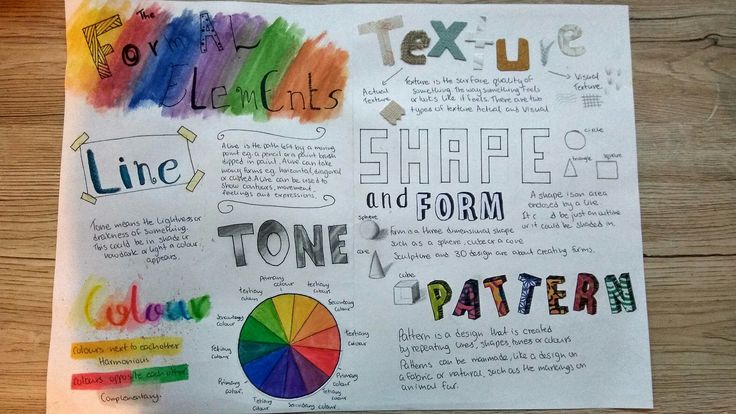 The
Formal
Elements
Texture
Actual
Texture
Texture is the surface quality of
something. The way something feels
or looks like it feels. There are two
types of texture Actual and Visual
Visual
Texture.
Line
A line is the path left by a moving
point eg. a pencil or a paint brush
dipped in paint. A line can take
many forms eg. horizontal, diagonal
or curved. A line can be used to
show contours, movement,
feelings and expressions.
SHAPE
and FORM
circle
triangle
square
A shape is an area
enclosed by a line.
It c d be just an outline
or it could be shaded in.
Tone means the lightness or
drakness of something.
This could be in shade or
how dark or light a colour
appears.
TONE
sphere
cone
cube
Form is a three dimensional shape
such as a sphere, cube or a cone
Sculpture and 3D design are about creating forms.
Colour
colours next to eachother
Harmonious
colours opposite each other.
Complementary.
Primary
colour
tertiary
colour
Secondary
colour
Tertiary
colour
Primary
colour
Tertiary
colour
Secondary colour
Tertiary
Colour
Primary
colour.
Tertiary
colour
Secondary
colour
tertiary
colour
PATTERN
Pattern is a design that is created
by repeating lines, shapes, tones or colours
Patterns can be manmade, like a design on
a fabric or natural, such as the markings on
animal fur.